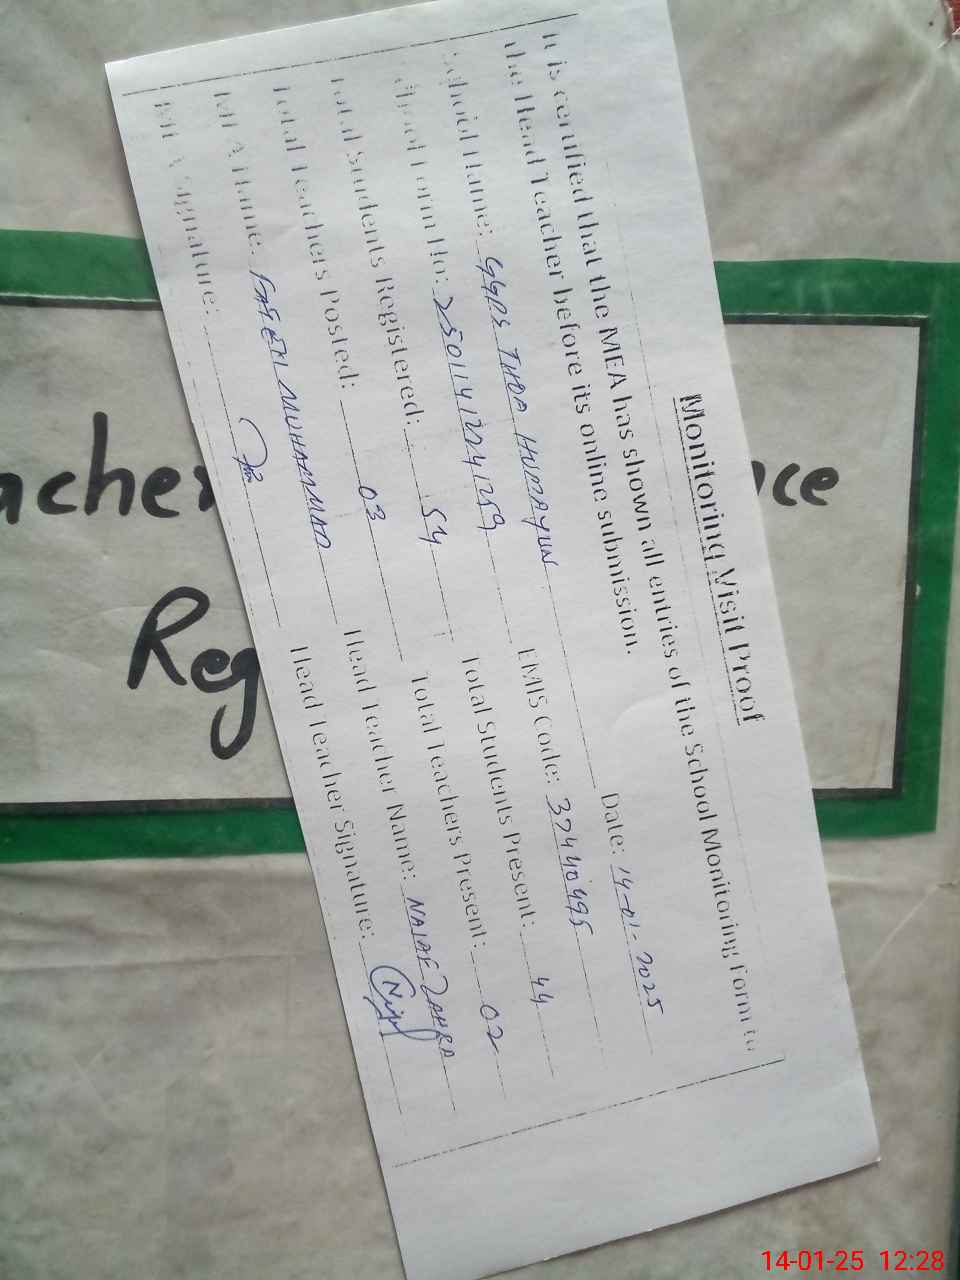 Monitoring Visit Proof
It is certified that the MEA has shown all entries of the School Monitoring Form to
the Head Teacher before its online submission.
Date: 14-01-2025
School Name: GGPS THOA HUMAYUN
EMIS Code: 37440495
School Form No: 25011412241259
Total Students Present: 44
Total Students Registered: 54
Total Teachers Present: 02
Total Teachers Posted: 03
Head Teacher Name: ZAHRA
MEA Name: MUHAMMAD
Head Teacher Signature:
MEA Signature:
acher
ce
Reg
14-01-25 12:28